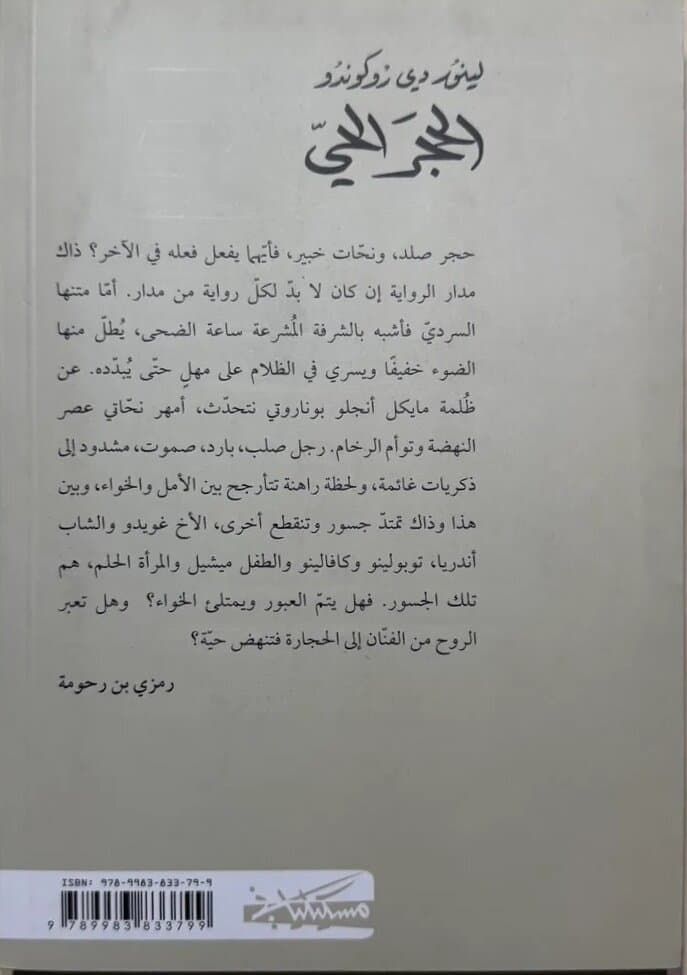 لينور دي روكوندو
الحجر الحيّ
حجر صلد، ونحّات خبير، فأيّهما يفعل فعله في الآخر؟ ذاك
مدار الرواية إن كان لا بدّ لكلّ رواية من مدار. أمّا متنها
السرديّ فأشبه بالشرفة المُشرعة ساعة الضحى، يُطلّ منها
الضوء خفيفًا ويسري في الظلام على مهلٍ حتّى يُبدّده. عن
ظُلمة مايكل أنجلو بوناروتي نتحدّث، أمهر نحّاتي عصر
النهضة وتوأم الرخام. رجل صلب، بارد، صموت، مشدود إلى
ذكريات غائمة، ولحظة راهنة تتأرجح بين الأمل والخواء، وبين
هذا وذاك تمتدّ جسور وتنقطع أخرى، الأخ غويدو والشاب
أندريا، توبولينو وكافالينو والطفل ميشيل والمرأة الحلم، هم
تلك الجسور. فهل يتمّ العبور ويمتلئ الخواء؟ وهل تعبر
الروح من الفنّان إلى الحجارة فتنهض حيّة؟
رمزي بن رحومة
ISBN: 978-9983-833-79-9
9 789983 833799
مسكيلياني